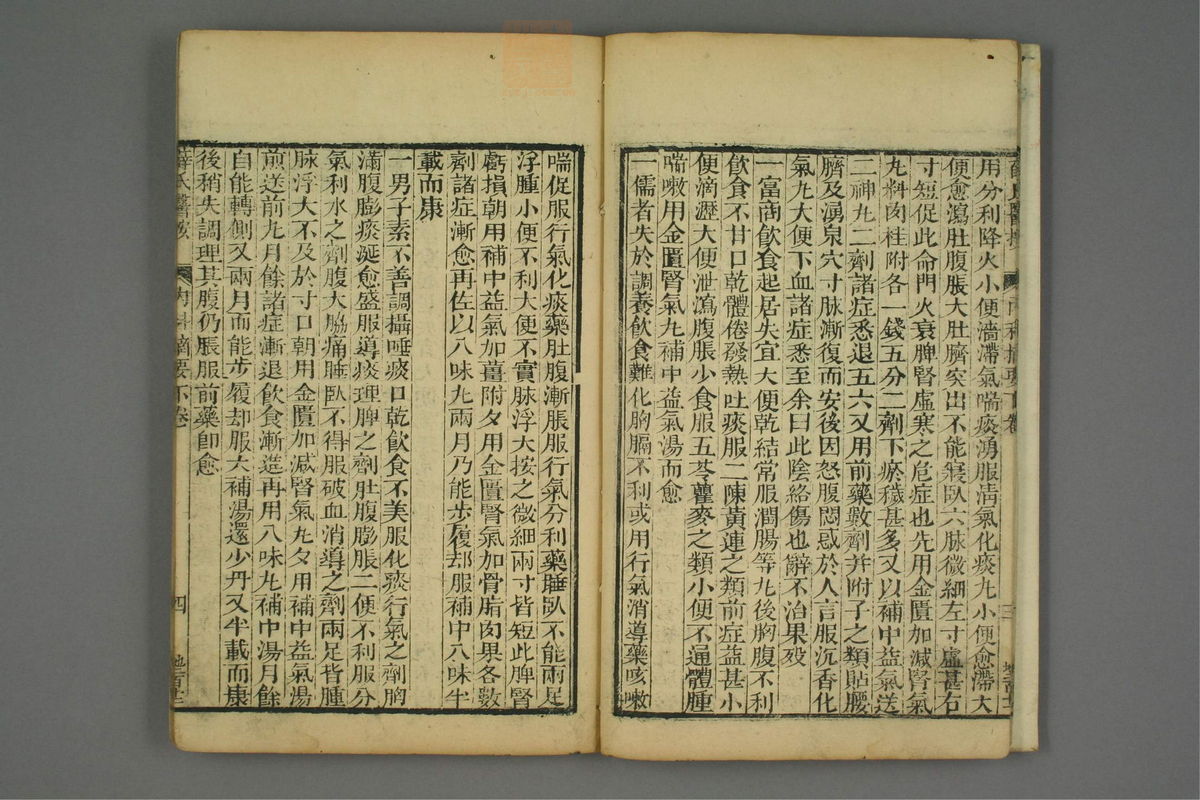 用分利降火小便濇滯氣喘痰湧服淸氣化痰丸小便愈滯大
便愈瀉肚腹脹大肚臍突出不能寢臥六脉微細左寸虛甚右
寸短促此命門火衰脾腎虛寒之危症也先用金匱加減腎氣
丸料肉桂附各一錢五分二劑下瘀穢甚多又以補中益氣送
二神丸二劑諸症悉退五六又用前藥數劑并附子之類貼腰
臍及湧泉穴寸脉漸復而安後因怒腹悶惑於人言服沉香化
氣丸大便下血諸症悉至余曰此陰絡傷也辭不治果殁
一富商飲食起居失宜大便乾結常服潤腸等丸後胸腹不利
飲食不甘口乾體倦發熱吐痰服二陳黃連之類前症益甚小
便滴瀝大便泄瀉腹脹少食服五苓瞿麥之類小便不通體腫
喘嗽用金匱腎氣丸補中益氣湯而愈
一儒者失於調養飲食難化胸膈不利或用行氣消導藥咳嗽
喘促服行氣化痰藥肚腹漸脹服行氣分利藥睡臥不能兩足
浮腫小便不利大便不實脉浮大按之微細兩寸皆短此脾腎
虧損朝用補中益氣加薑附夕用金匱腎氣加骨脂肉果各數
劑諸症漸愈再佐以八味丸兩月乃能步履却服補中八味半
載而康
一男子素不善調攝唾痰口乾飲食不美服化痰行氣之劑胸
滿腹膨痰涎愈盛服導痰理脾之劑肚腹膨脹二便不利服分
氣利水之劑腹大脇痛睡臥不得服破血消導之劑兩足皆腫
脉浮大不及於寸口朝用金匱加減腎氣丸夕用補中益氣湯
煎送前丸月餘諸症漸退飲食漸進再用八味丸補中湯月餘
自能轉側又兩月而能步履却服大補湯還少丹又半載而康
後稍失調理其腹仍脹服前藥即愈
薛氏醫按 內科摘要下卷 四